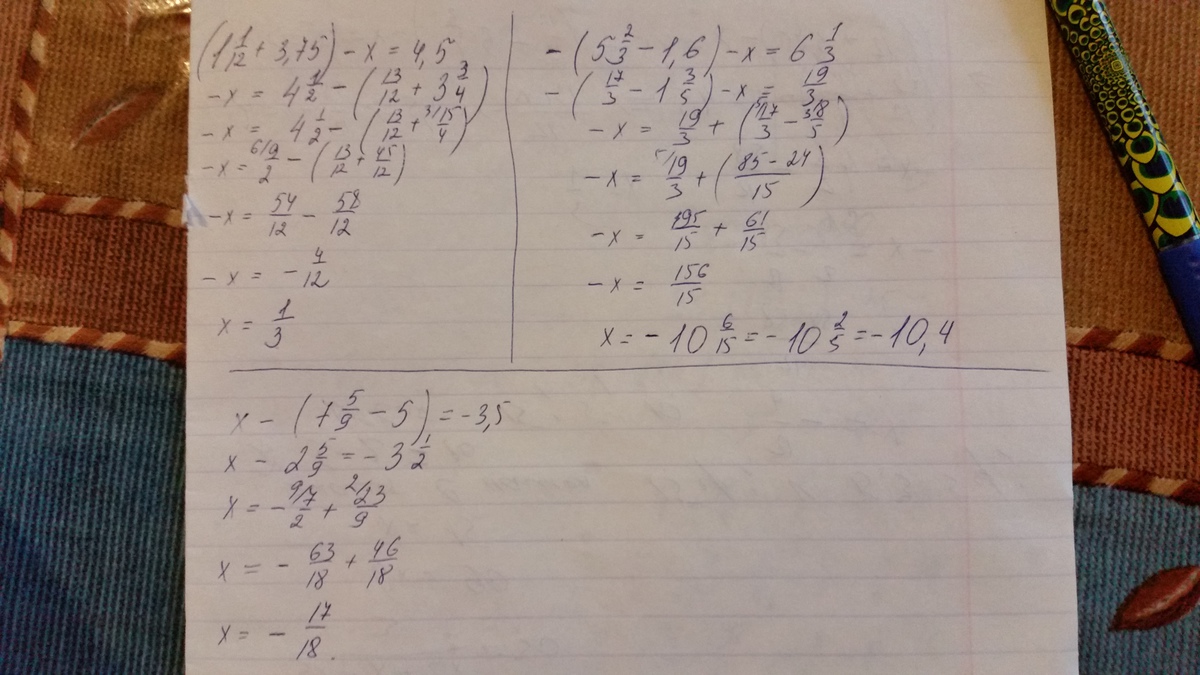 (1 1/12 + 3,75) - x = 4,5
-x = 4 1/2 - (13/12 + 3 3/4)
-x = 4 1/2 - (13/12 + 3/ 15/4)
-x = 6/ 9/2 - (13/12 + 45/12)
-x = 54/12 - 58/12
-x = - 4/12
x = 1/3
-(5 2/3 - 1,6) - x = 6 1/3
-(17/3 - 1 3/5) - x = 19/3
-x = 19/3 + (5/ 17/3 - 3/ 8/5)
-x = 5/ 19/3 + (85 - 24 / 15)
-x = 95/15 + 61/15
-x = 156/15
x = -10 6/15 = -10 2/5 = -10,4
x - (7 5/9 - 5) = -3,5
x - 2 5/9 = -3 1/2
x = - 9/ 7/2 + 2/ 23/9
x = - 63/18 + 46/18
x = - 17/18.